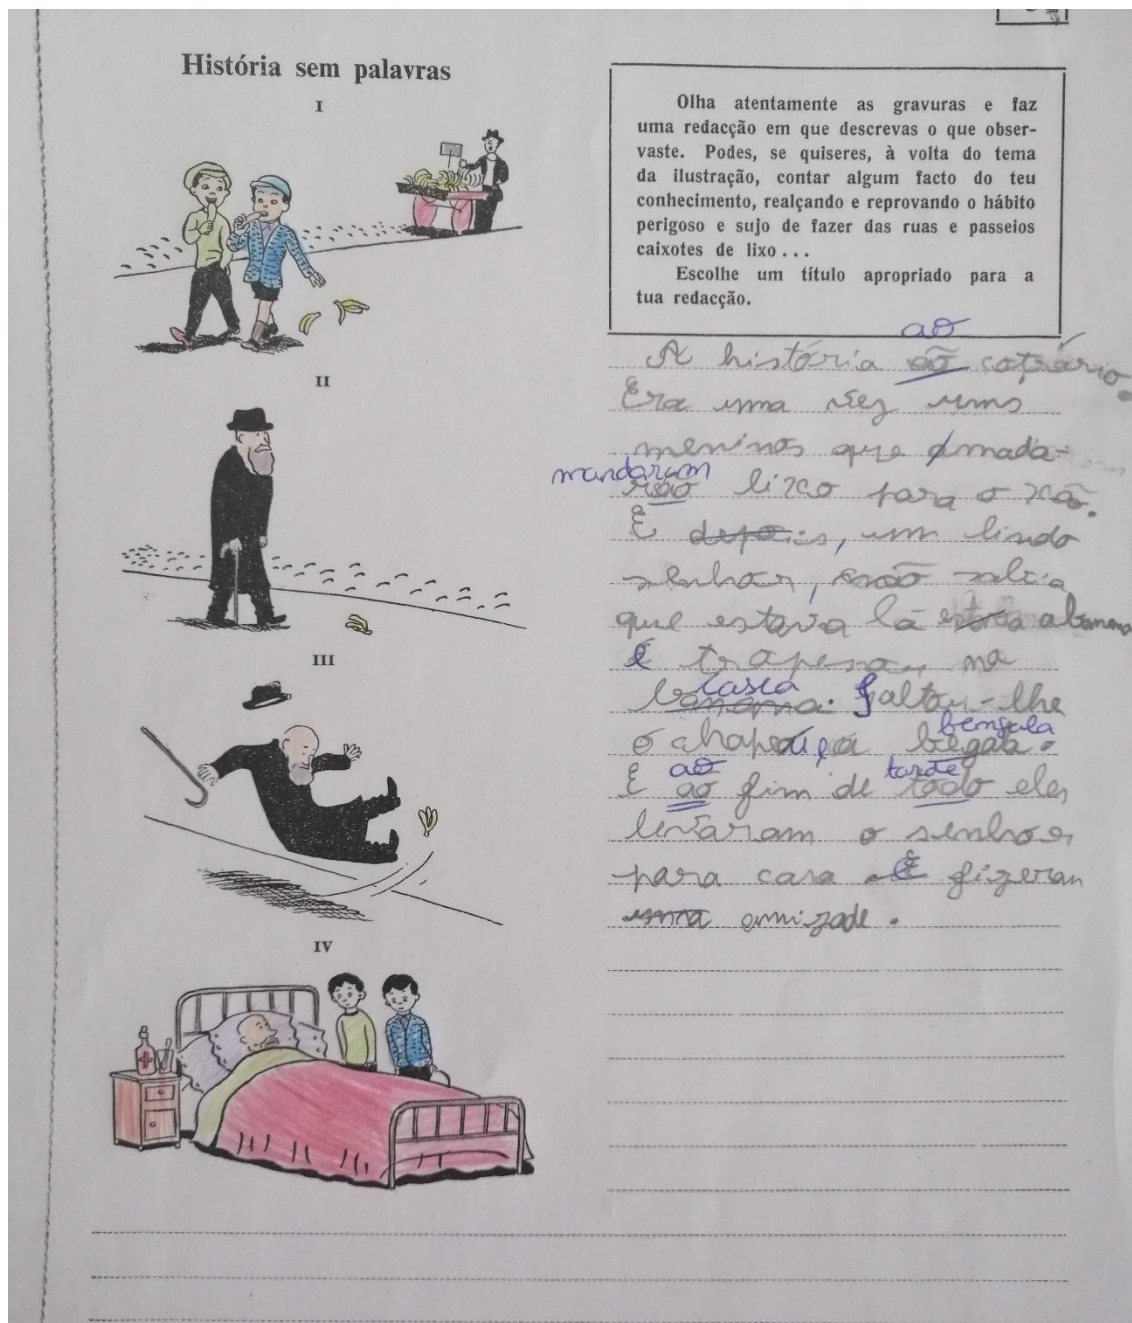 História sem palavras
I
II
III
IV
Olha atentamente as gravuras e faz
uma redacção em que descrevas o que obser-
vaste. Podes, se quiseres, à volta do tema
da ilustração, contar algum facto do teu
conhecimento, realçando e reprovando o hábito
perigoso e sujo de fazer das ruas e passeios
caixotes de lixo . . .
Escolhe um título apropriado para a
tua redacção.
ao
A história aõ cotrário.
Era uma vez uns
meninos que mada-
mandaram
rão lixo para o xão.
E depois, um lindo
senhor, não sabia
que estava lá a banana
E trapesou, na
casca
banana. Saltou-lhe
bengala
o chapéu, a begala.
ao tarde
E aõ fim de todo eles
levaram o senhor
para casa E fizeram
uma amizade.